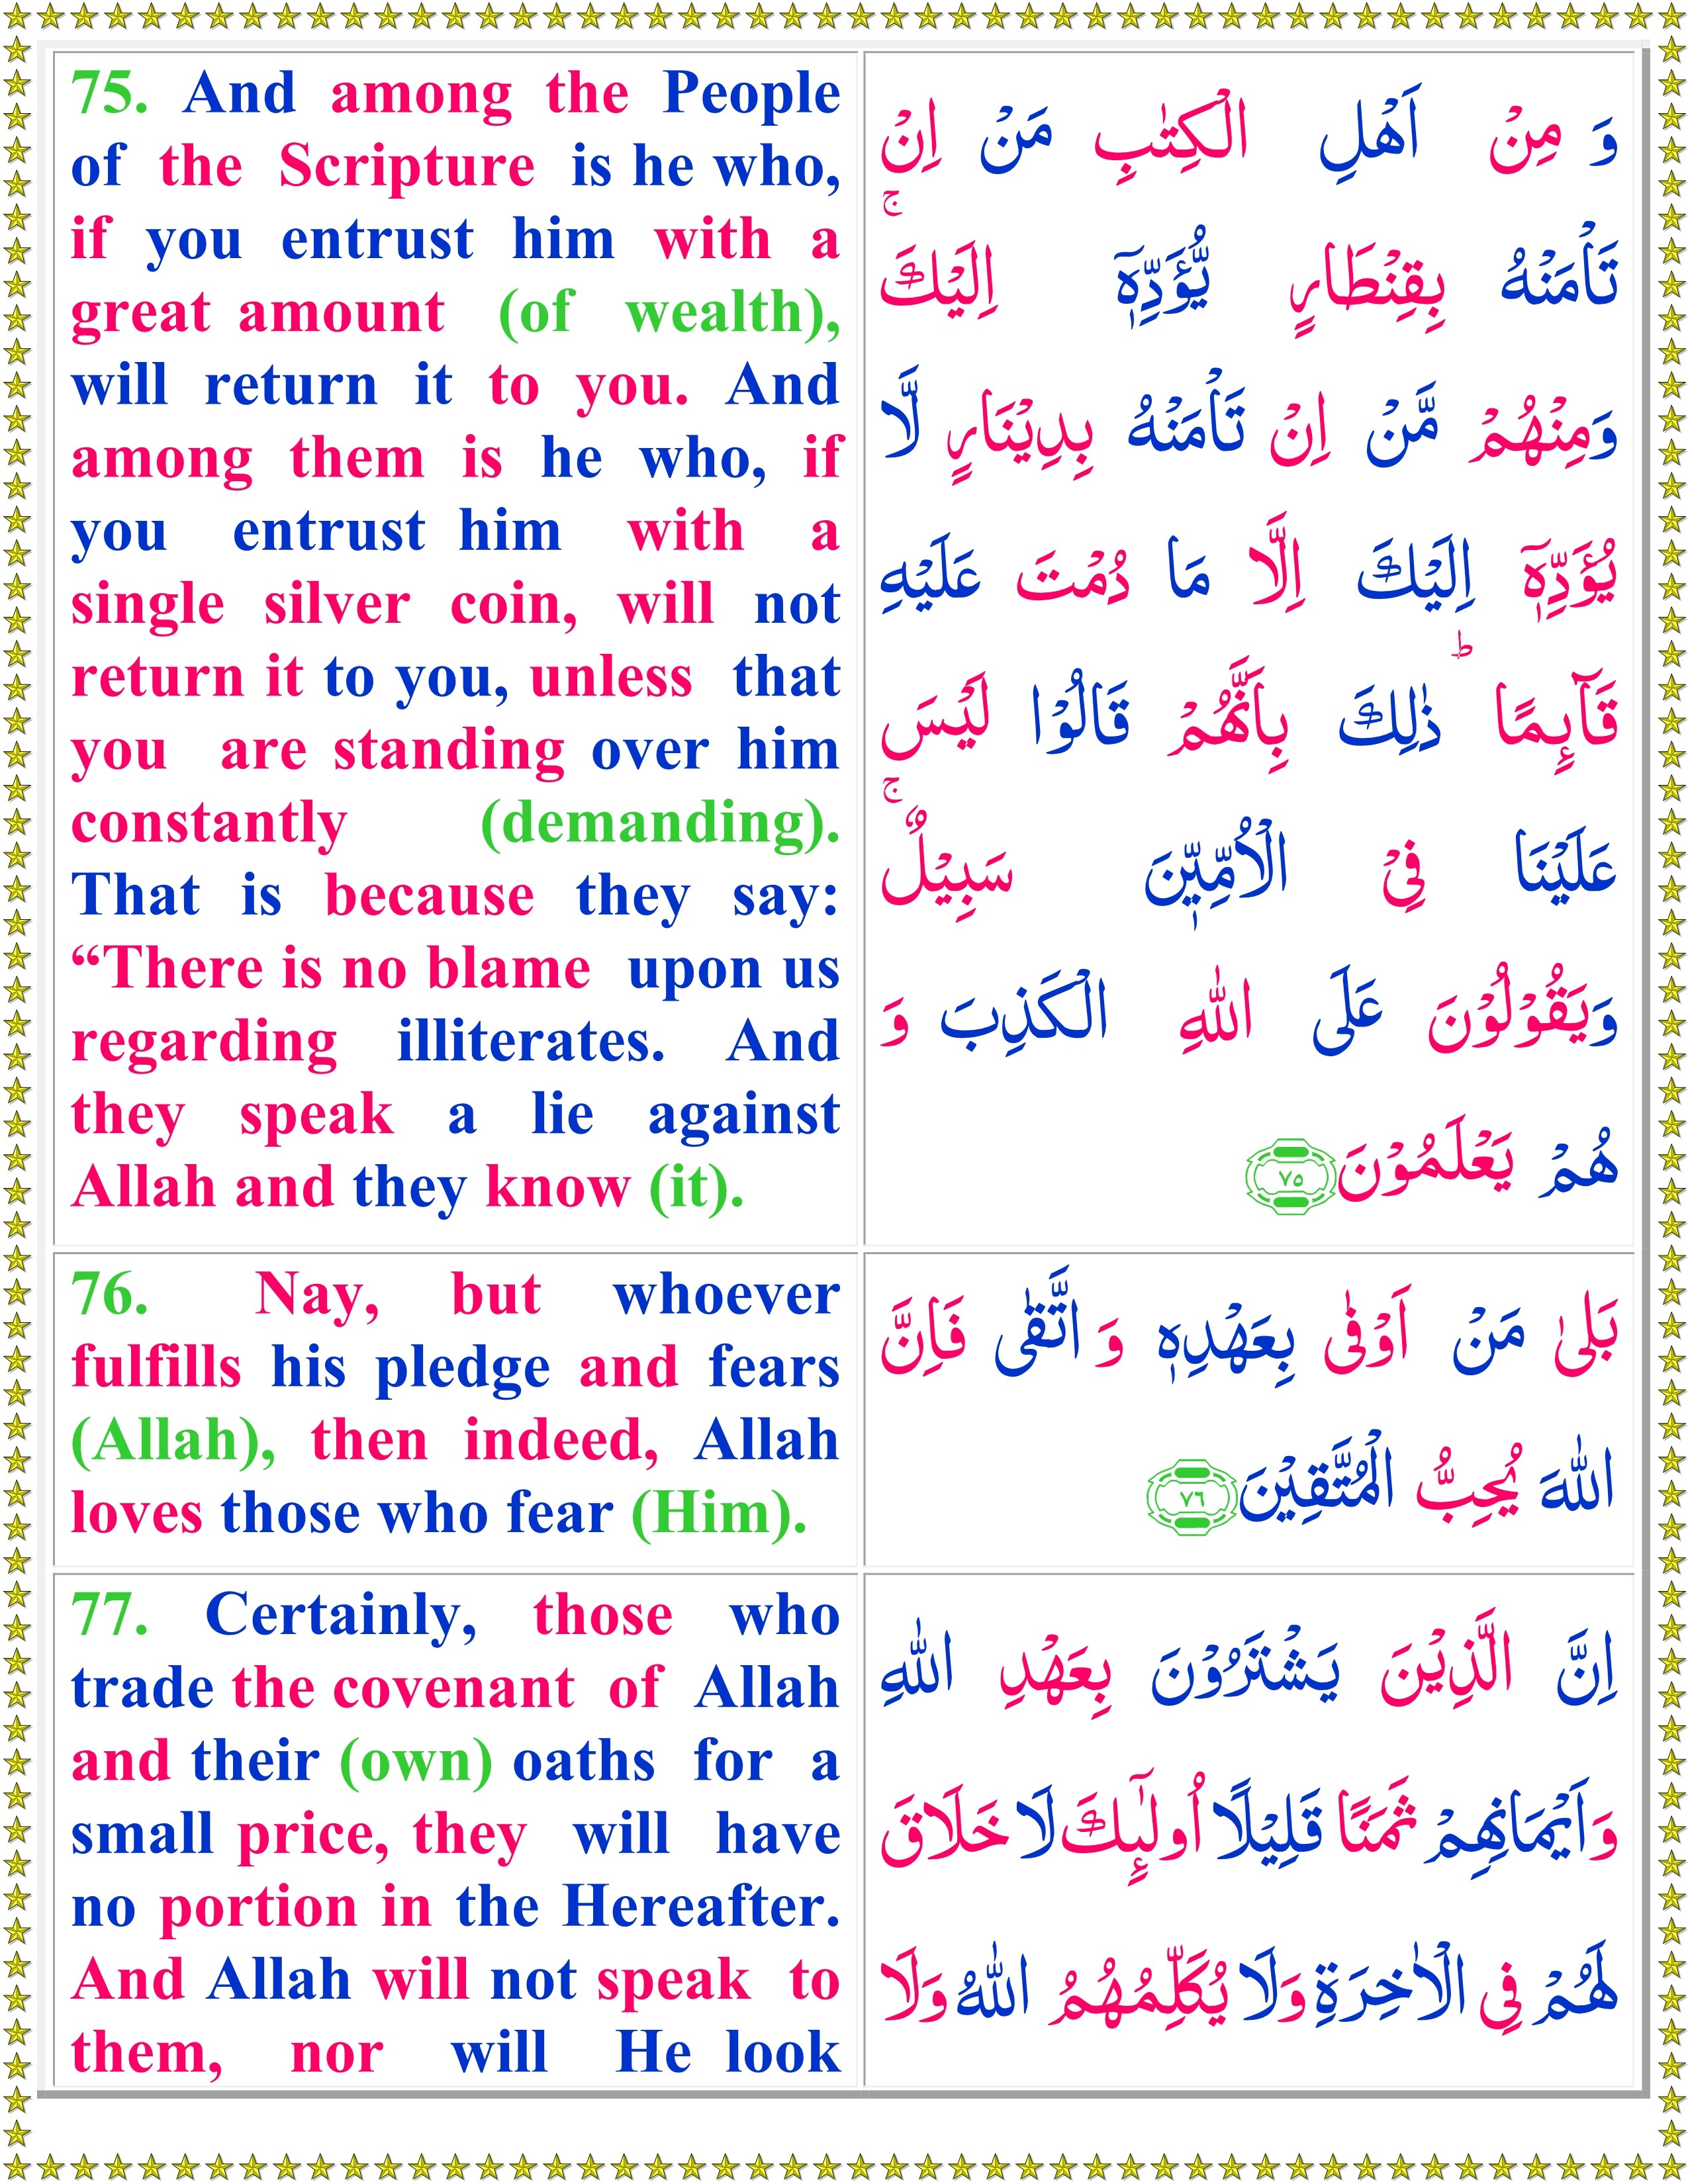 75. And among the People
of the Scripture is he who,
if you entrust him with a
great amount (of wealth),
will return it to you. And
among them is he who, if
you entrust him with a
single silver coin, will not
return it to you, unless that
you are standing over him
constantly (demanding).
That is because they say:
“There is no blame upon us
regarding illiterates. And
they speak a lie against
Allah and they know (it).
وَ مِنْ اَهْلِ الْكِتٰبِ مَنْ اِنْ
تَاْمَنْهُ بِقِنْطَارٍ يُّؤَدِّهٖۤ اِلَيْكَ ۚ
وَمِنْهُمْ مَّنْ اِنْ تَاْمَنْهُ بِدِيْنَارٍ لَّا
يُؤَدِّهٖۤ اِلَيْكَ اِلَّا مَا دُمْتَ عَلَيْهِ
قَآىِٕمًا ؕ ذٰلِكَ بِاَنَّهُمْ قَالُوْا لَيْسَ
عَلَيْنَا فِیْ الْاُمِّيّٖنَ سَبِيْلٌ ۚ
وَيَقُوْلُوْنَ عَلَى اللّٰهِ الْكَذِبَ وَ
هُمْ يَعْلَمُوْنَ ٧٥
76. Nay, but whoever
fulfills his pledge and fears
(Allah), then indeed, Allah
loves those who fear (Him).
بَلٰى مَنْ اَوْفٰى بِعَهْدِهٖ وَ اتَّقٰى فَاِنَّ
اللّٰهَ يُحِبُّ الْمُتَّقِيْنَ ٧٦
77. Certainly, those who
trade the covenant of Allah
and their (own) oaths for a
small price, they will have
no portion in the Hereafter.
And Allah will not speak to
them, nor will He look
اِنَّ الَّذِيْنَ يَشْتَرُوْنَ بِعَهْدِ اللّٰهِ
وَاَيْمَانِهِمْ ثَمَنًا قَلِيْلًا اُولٰٓىِٕكَ لَا خَلَاقَ
لَهُمْ فِی الْاٰخِرَةِ وَلَا يُكَلِّمُهُمُ اللّٰهُ وَلَا